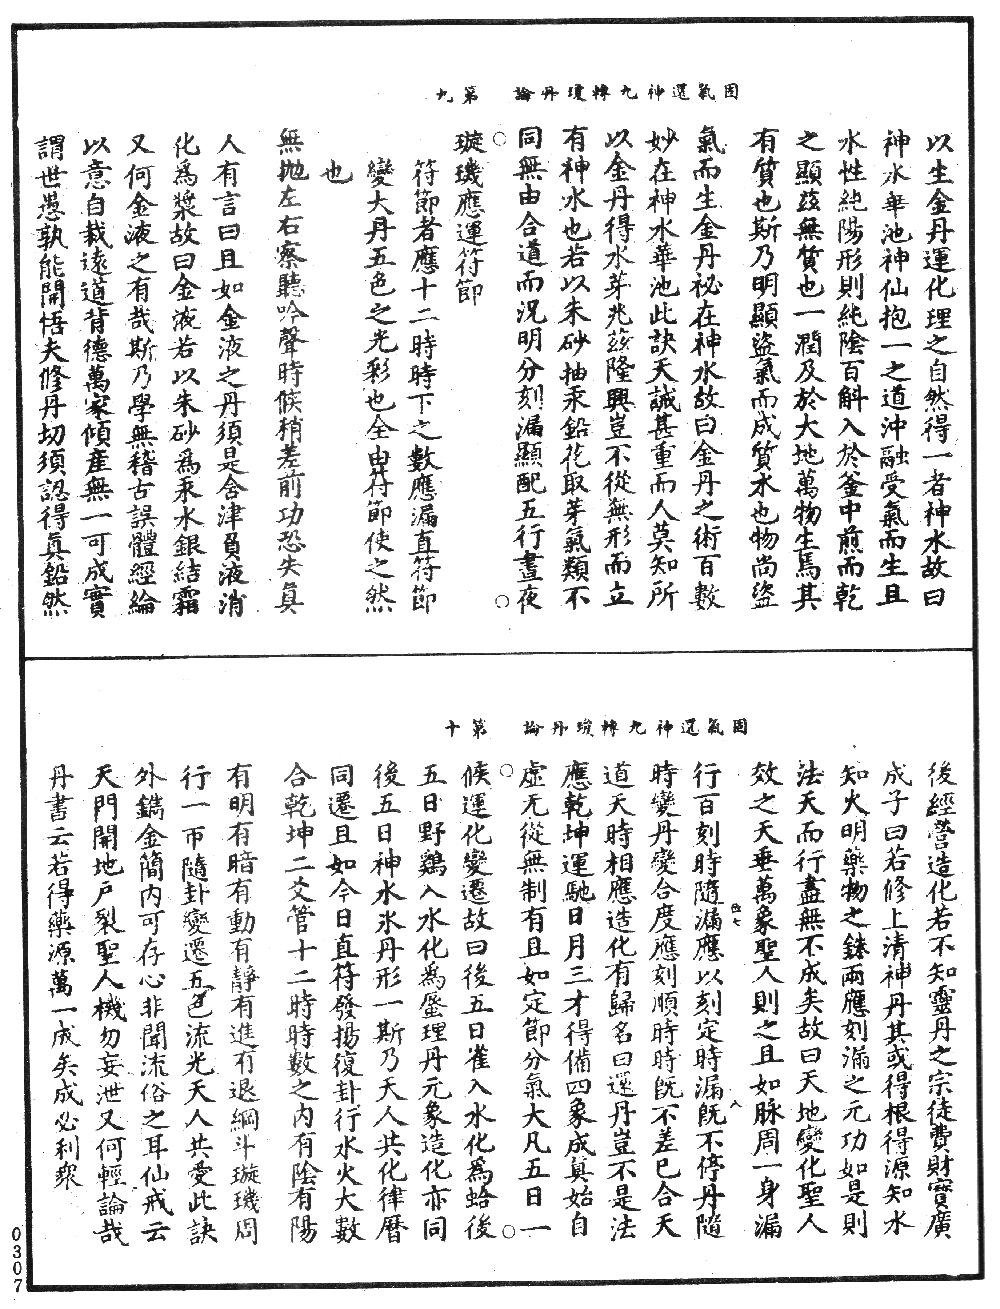 固氣還神九轉瓊丹論　第九
以生金丹運化理之自然得一者神水故曰
神水華池神仙抱一之道沖融受氣而生且
水性純陽形則純陰百斛入於釜中煎而乾
之顯茲無質也一潤及於大地萬物生焉其
有質也斯乃明顯盜氣而成質水也物尚盜
氣而生金丹祕在神水故曰金丹之術百數
妙在神水華池此訣天誠甚重而人莫知所
以金丹得水芽兆茲隆興豈不從無形而立
有神水也若以朱砂抽汞鉛花取芽氣類不
同無由合道而況明分刻漏顯配五行晝夜
璇璣應運符節
符節者應十二時時下之數應漏直符節
變大丹五色之光彩也全由符節使之然
也
無拋左右察聽吟聲時候稍差前功恐失真
人有言曰且如金液之丹須是含津員液消
化為漿故曰金液若以朱砂為汞水銀結霜
又何金液之有哉斯乃學無稽古誤體經綸
以意自裁遠道背德萬家傾產無一可成實
謂世愚孰能開悟夫修丹切須認得真鉛然
固氣還神九轉瓊丹論　第十
後經營造化若不知靈丹之宗徒費財寶廣
成子曰若修上清神丹其或得根得源知水
知火明藥物之銖兩應刻漏之元功如是則
法天而行盡無不成矣故曰天地變化聖人
效之天垂萬象聖人則之且如脉周一身漏
行百刻時隨漏應以刻定時漏旣不停丹隨
時變丹變合度應刻順時時旣不差已合天
道天時相應造化有歸名曰還丹豈不是法
應乾坤運馳日月三才得備四象成真始自
虛无從無制有且如定節分氣大凡五日一
候運化變遷故曰後五日雀入水化為蛤後
五日野鷄入水化為蜃理丹元象造化亦同
後五日神水氷丹形一斯乃天人共化律曆
同遷且如今日直符發揚復卦行水火大數
合乾坤二爻管十二時時數之內有陰有陽
有明有暗有動有靜有進有退綱斗璇璣周
行一帀隨卦變遷五色流光天人共愛此訣
外鐫金簡內可存心非聞流俗之耳仙戒云
天門開地戶裂聖人機勿妄泄又何輕論哉
丹書云若得藥源萬一成矣成必利衆
0307